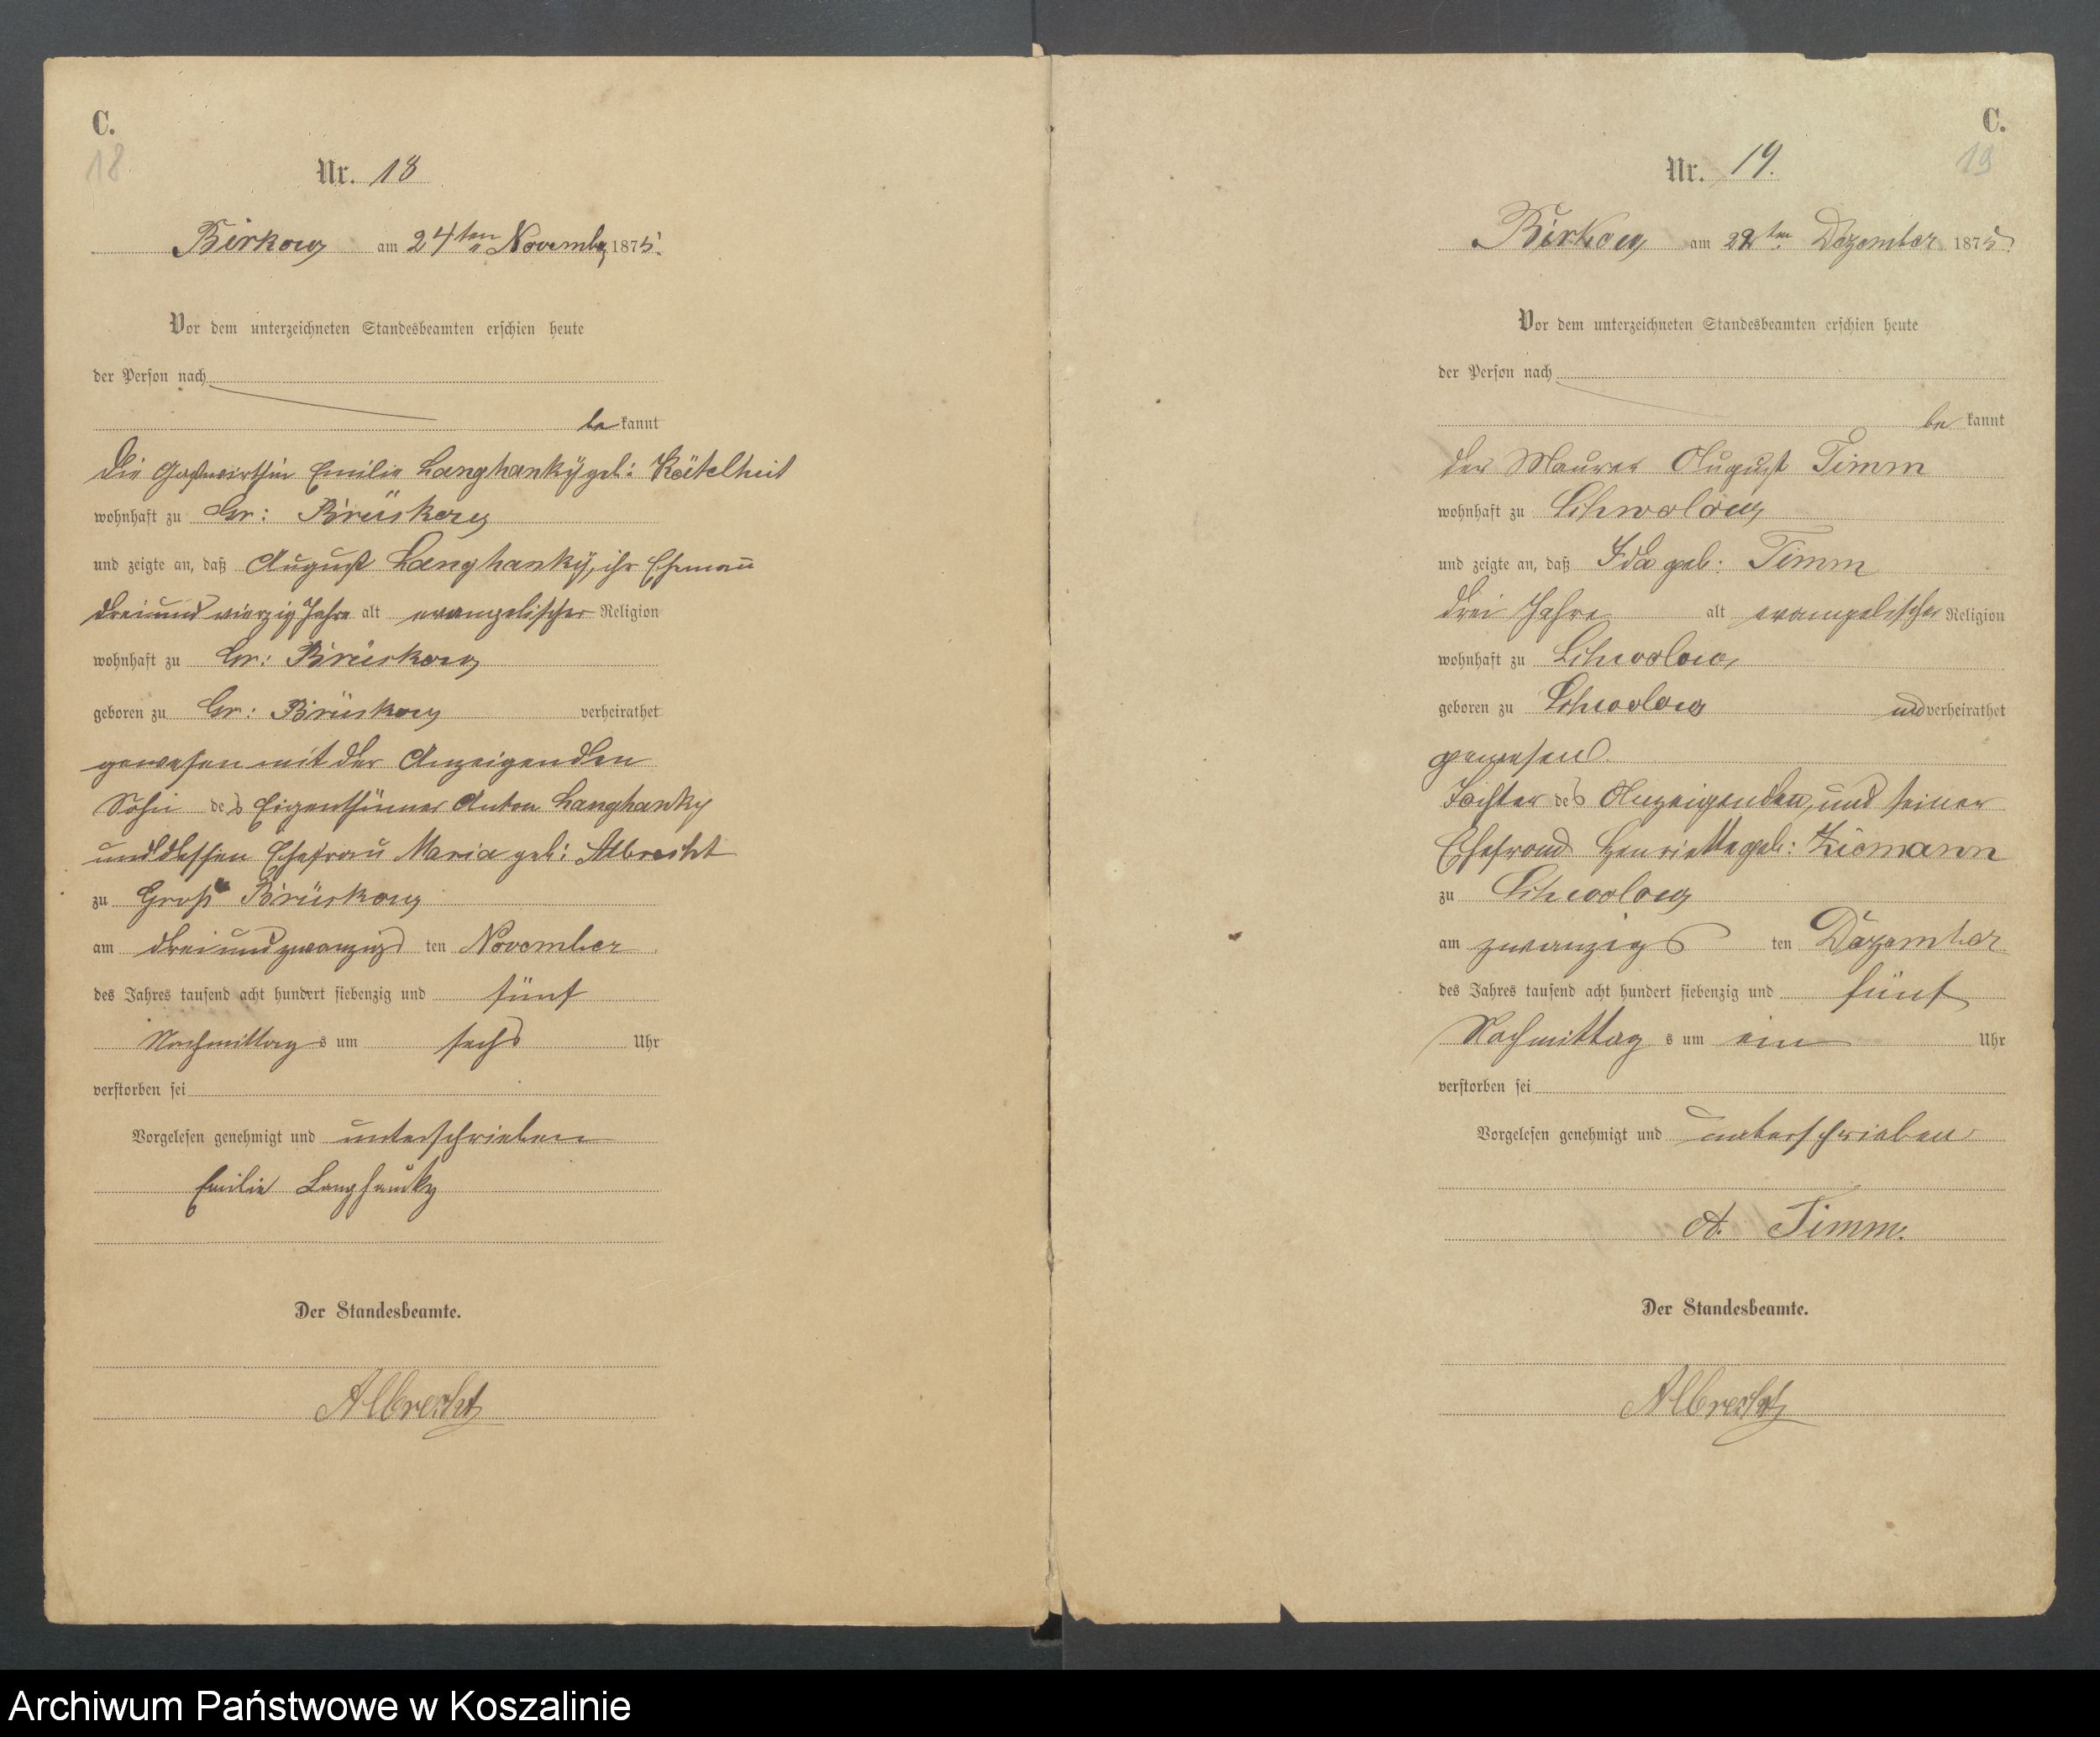 C.
18
Nr. 18
Birkow am 24ten Novemb 1875.
Vor dem unterzeichneten Standesbeamten erschien heute
der Person nach
be kannt
die Gastwirthin Emilie Langhanky geb: Kätelheit
wohnhaft zu Gr: Brüskow
und zeigte an, daß August Langhanky, ihr Ehemañ
dreiundvierzig Jahre alt evangelischer Religion
wohnhaft zu Gr: Brüskow
geboren zu Gr: Brüskow verheirathet
gewesen mit der Anzeigenden
Sohn des Eigenthümer Anton Langhanky
und dessen Ehefrau Maria geb: Albrecht
zu Groß Brüskow
am dreiundzwanzigs ten November
des Jahres tausend acht hundert siebenzig und fünf
Nachmittag s um sechs Uhr
verstorben sei
Vorgelesen genehmigt und unterschrieben
Emilie Langhanky
Der Standesbeamte.
Albrecht
C.
19
Nr. 19.
Birkow am 22ten Dezember 1875.
Vor dem unterzeichneten Standesbeamten erschien heute
der Person nach
be kannt
der Maurer August Timm
wohnhaft zu Schwolow
und zeigte an, daß Ida geb: Timm
drei Jahre alt evangelischer Religion
wohnhaft zu Schwolow
geboren zu Schwolow und verheirathet
gewesen.
Tochter des Anzeigenden, und seiner
Ehefraud Henriette geb: Ziemann
zu Schwolow
am zwanzigs ten Dezember
des Jahres tausend acht hundert siebenzig und fünf
Nachmittag s um ein Uhr
verstorben sei
Vorgelesen genehmigt und unterschrieben
A. Timm.
Der Standesbeamte.
Albrecht
Archiwum Państwowe w Koszalinie